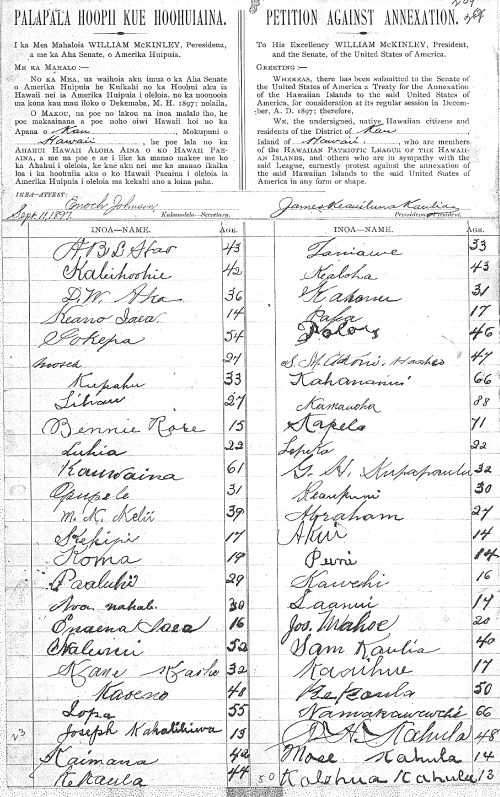 PALAPALA HOOPII KUE HOOHUIAINA.
I ka Mea Mahaloia WILLIAM McKINLEY, Peresidena,
a me ka Aha Senate, o Amerika Huipuia.
ME KA MAHALO:—
No KA MEA, ua waihoia aku imua o ka Aha Senate
o Amerika Huipuia he Kuikahi no ka Hoohui aku ia
Hawaii nei ia Amerika Huipuia i oleloia, no ka noonooia
ma kona kau mau iloko o Dekemaba, M. H. 1897; nolaila,
O MAKOU, na poe no lakou na inoa malalo iho, he
poe makaainana a poe noho oiwi Hawaii hoi no ka
Apana o Kau, Mokupuni o
Hawaii, he poe lala no ka
AHAHUI HAWAII ALOHA AINA O KO HAWAII PAE-
AINA, a me na poe e ae i like ka manao makee me ko
ka Ahahui i oleloia, ke kue aku nei me ka manao ikaika
loa i ka hoohuiia aku o ko Hawaii Paeaina i oleloia ia
Amerika Huipuia i oleloia ma kekahi ano a loina paha.
IKEA—ATTEST:
Enoch Johnson
Sept. 11, 1897. Kakauolelo—Secretary.
PETITION AGAINST ANNEXATION.
To His Excellency WILLIAM McKINLEY, President,
and the Senate, of the United States of America.
GREETING:—
WHEREAS, there has been submitted to the Senate of
the United States of America a Treaty for the Annexation
of the Hawaiian Islands to the said United States of Amer-
ica, for consideration at its regular session in Decem-
ber, A. D. 1897; therefore,
WE, the undersigned, native Hawaiian citizens and
residents of the District of Kau,
Island of Hawaii, who are members
of the HAWAIIAN PATRIOTIC LEAGUE OF THE HAWAII-
AN ISLANDS, and others who are in sympathy with the
said League, earnestly protest against the annexation of
the said Hawaiian Islands to the said United States of
America in any form or shape.
James Keauiluna Kaulia
Peresidena—President.
INOA—NAME. AGE.
43
Kaleihoohie 42
D. W. Aka 36
Keano 14
Iokepa 54
Mosed 27
Kupahu 33
Lihau 27
Bennie Rose 15
Luhia 22
Kauwaina 61
Opupele 31
M. K. Kelii 39
Kekipi 17
Koma 19
Paaluhi 29
30
16
Nalimu 52
Kane 32
48
Lopa 55
23 Joseph Kahalihiwa 15
Kaimana 42
Kekaula 44
INOA—NAME. AGE.
Taniawe 33
Kealoha 43
31
17
46
47
Kahananui 66
Kamauoha 88
Kapela 71
Lepeka 22
G. H. Kupapaulu 32
Keaupuni 30
Abraham 27
Akui 14
Puni 14
Kawehi 16
Laanui 14
Jos. Mahoe 20
Sam Kaulia 40
Kaoihue 17
Kekaula 50
66
Kahula 48
Mose Kahula 14
50 Kalehua Kahula 13